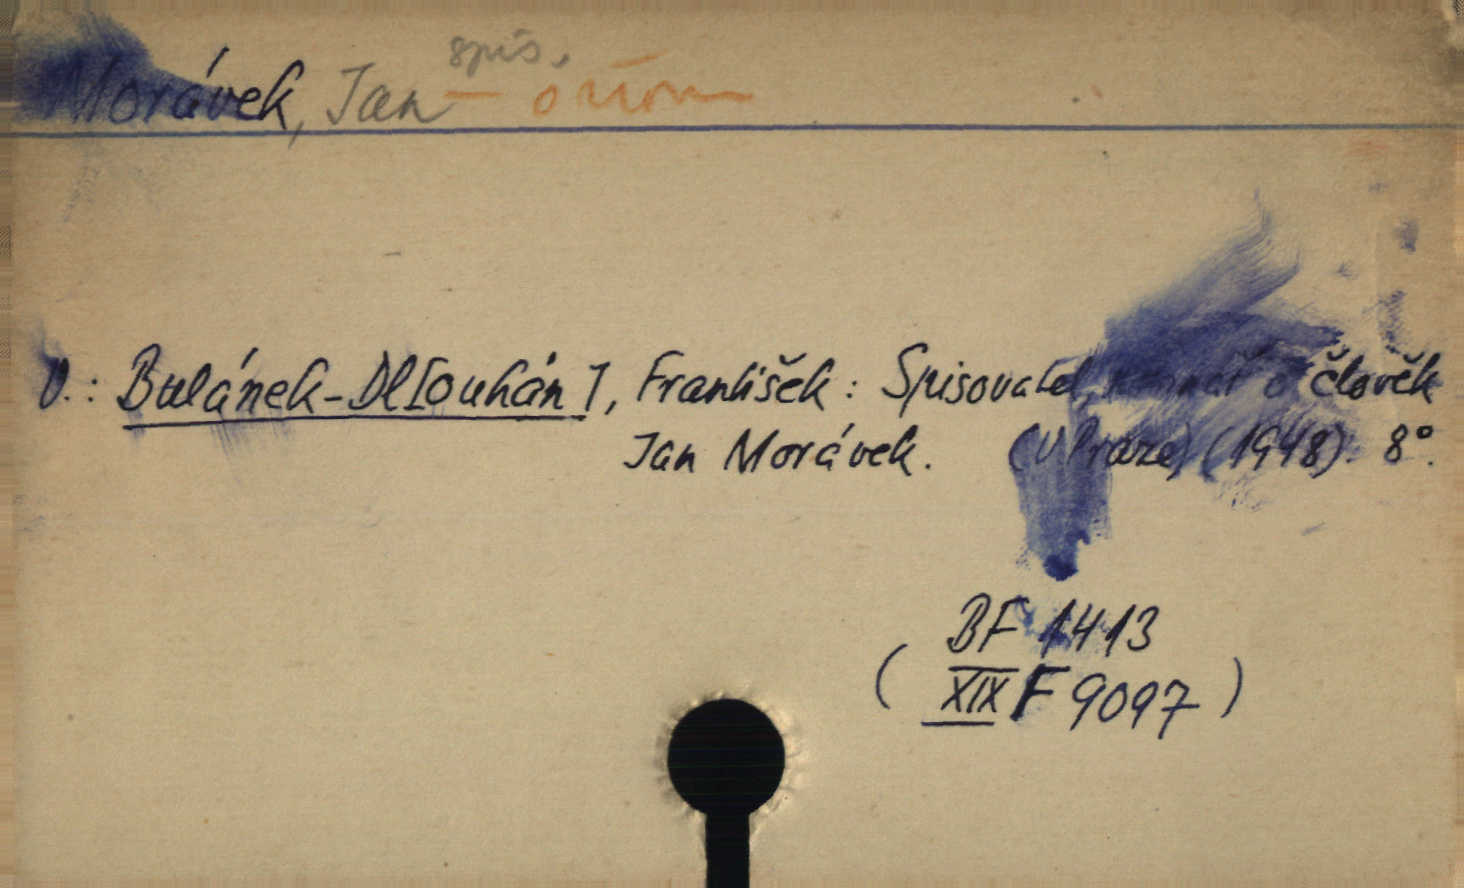 spis.
Morávek, Jan – o něm
V.: Bulánek-Dl[ouhán], František: Spisovatel, a člověk
Jan Morávek. (V Praze) (1948). 8°.
BF 1413
( XIX F 9097 )